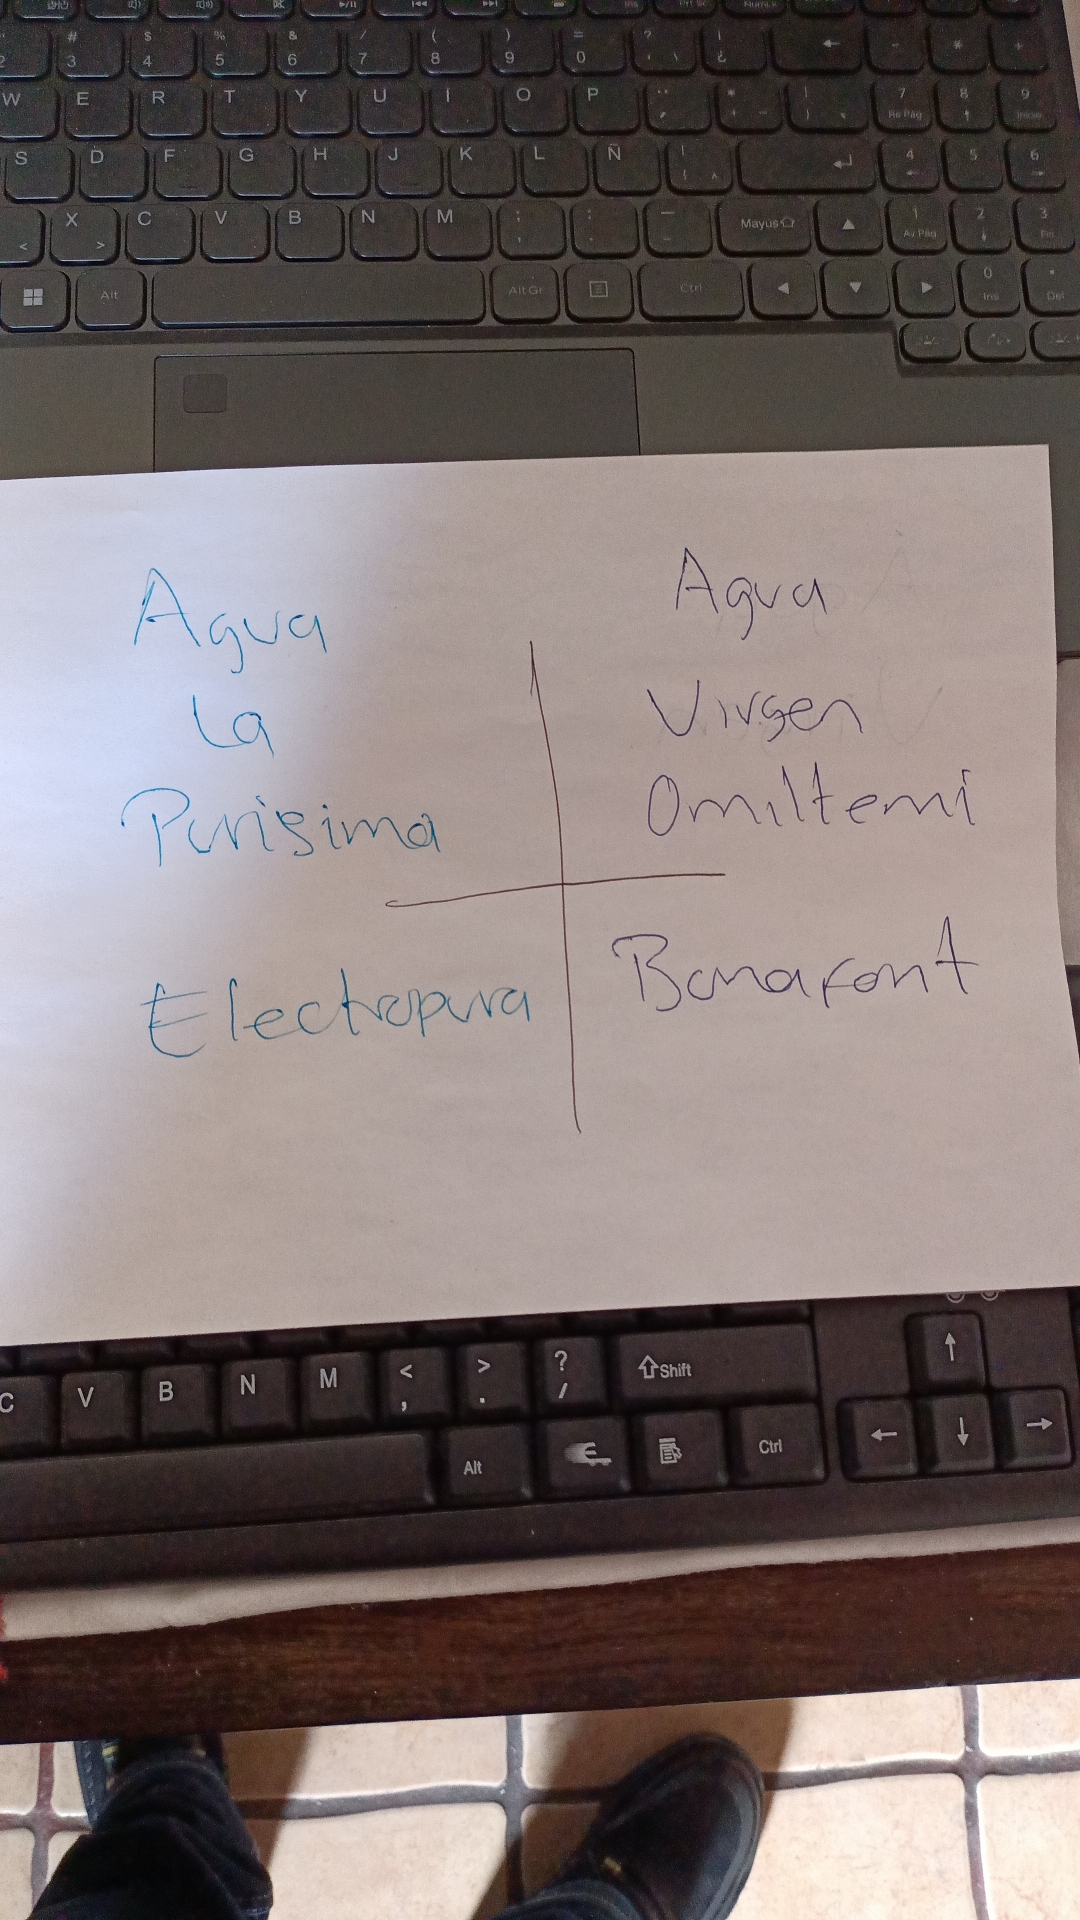 # $ % & / ( ) = ? ¿
3 4 5 6 7 8 9 0
W E R T Y U I O P 7 8 9
Re Pág Inicio
S D F G H J K L Ñ 4 5 6
X C V B N M ; : _ Mayus 1 2 3
< > , . - Av Pág Fin
Alt Alt Gr Ctrl 0
Ins Del
Agua
La
Purisima
Agua
Virgen
Omiltemi
Electropura
Bonafont
C V B N M < > ? Shift
, . /
Alt Ctrl